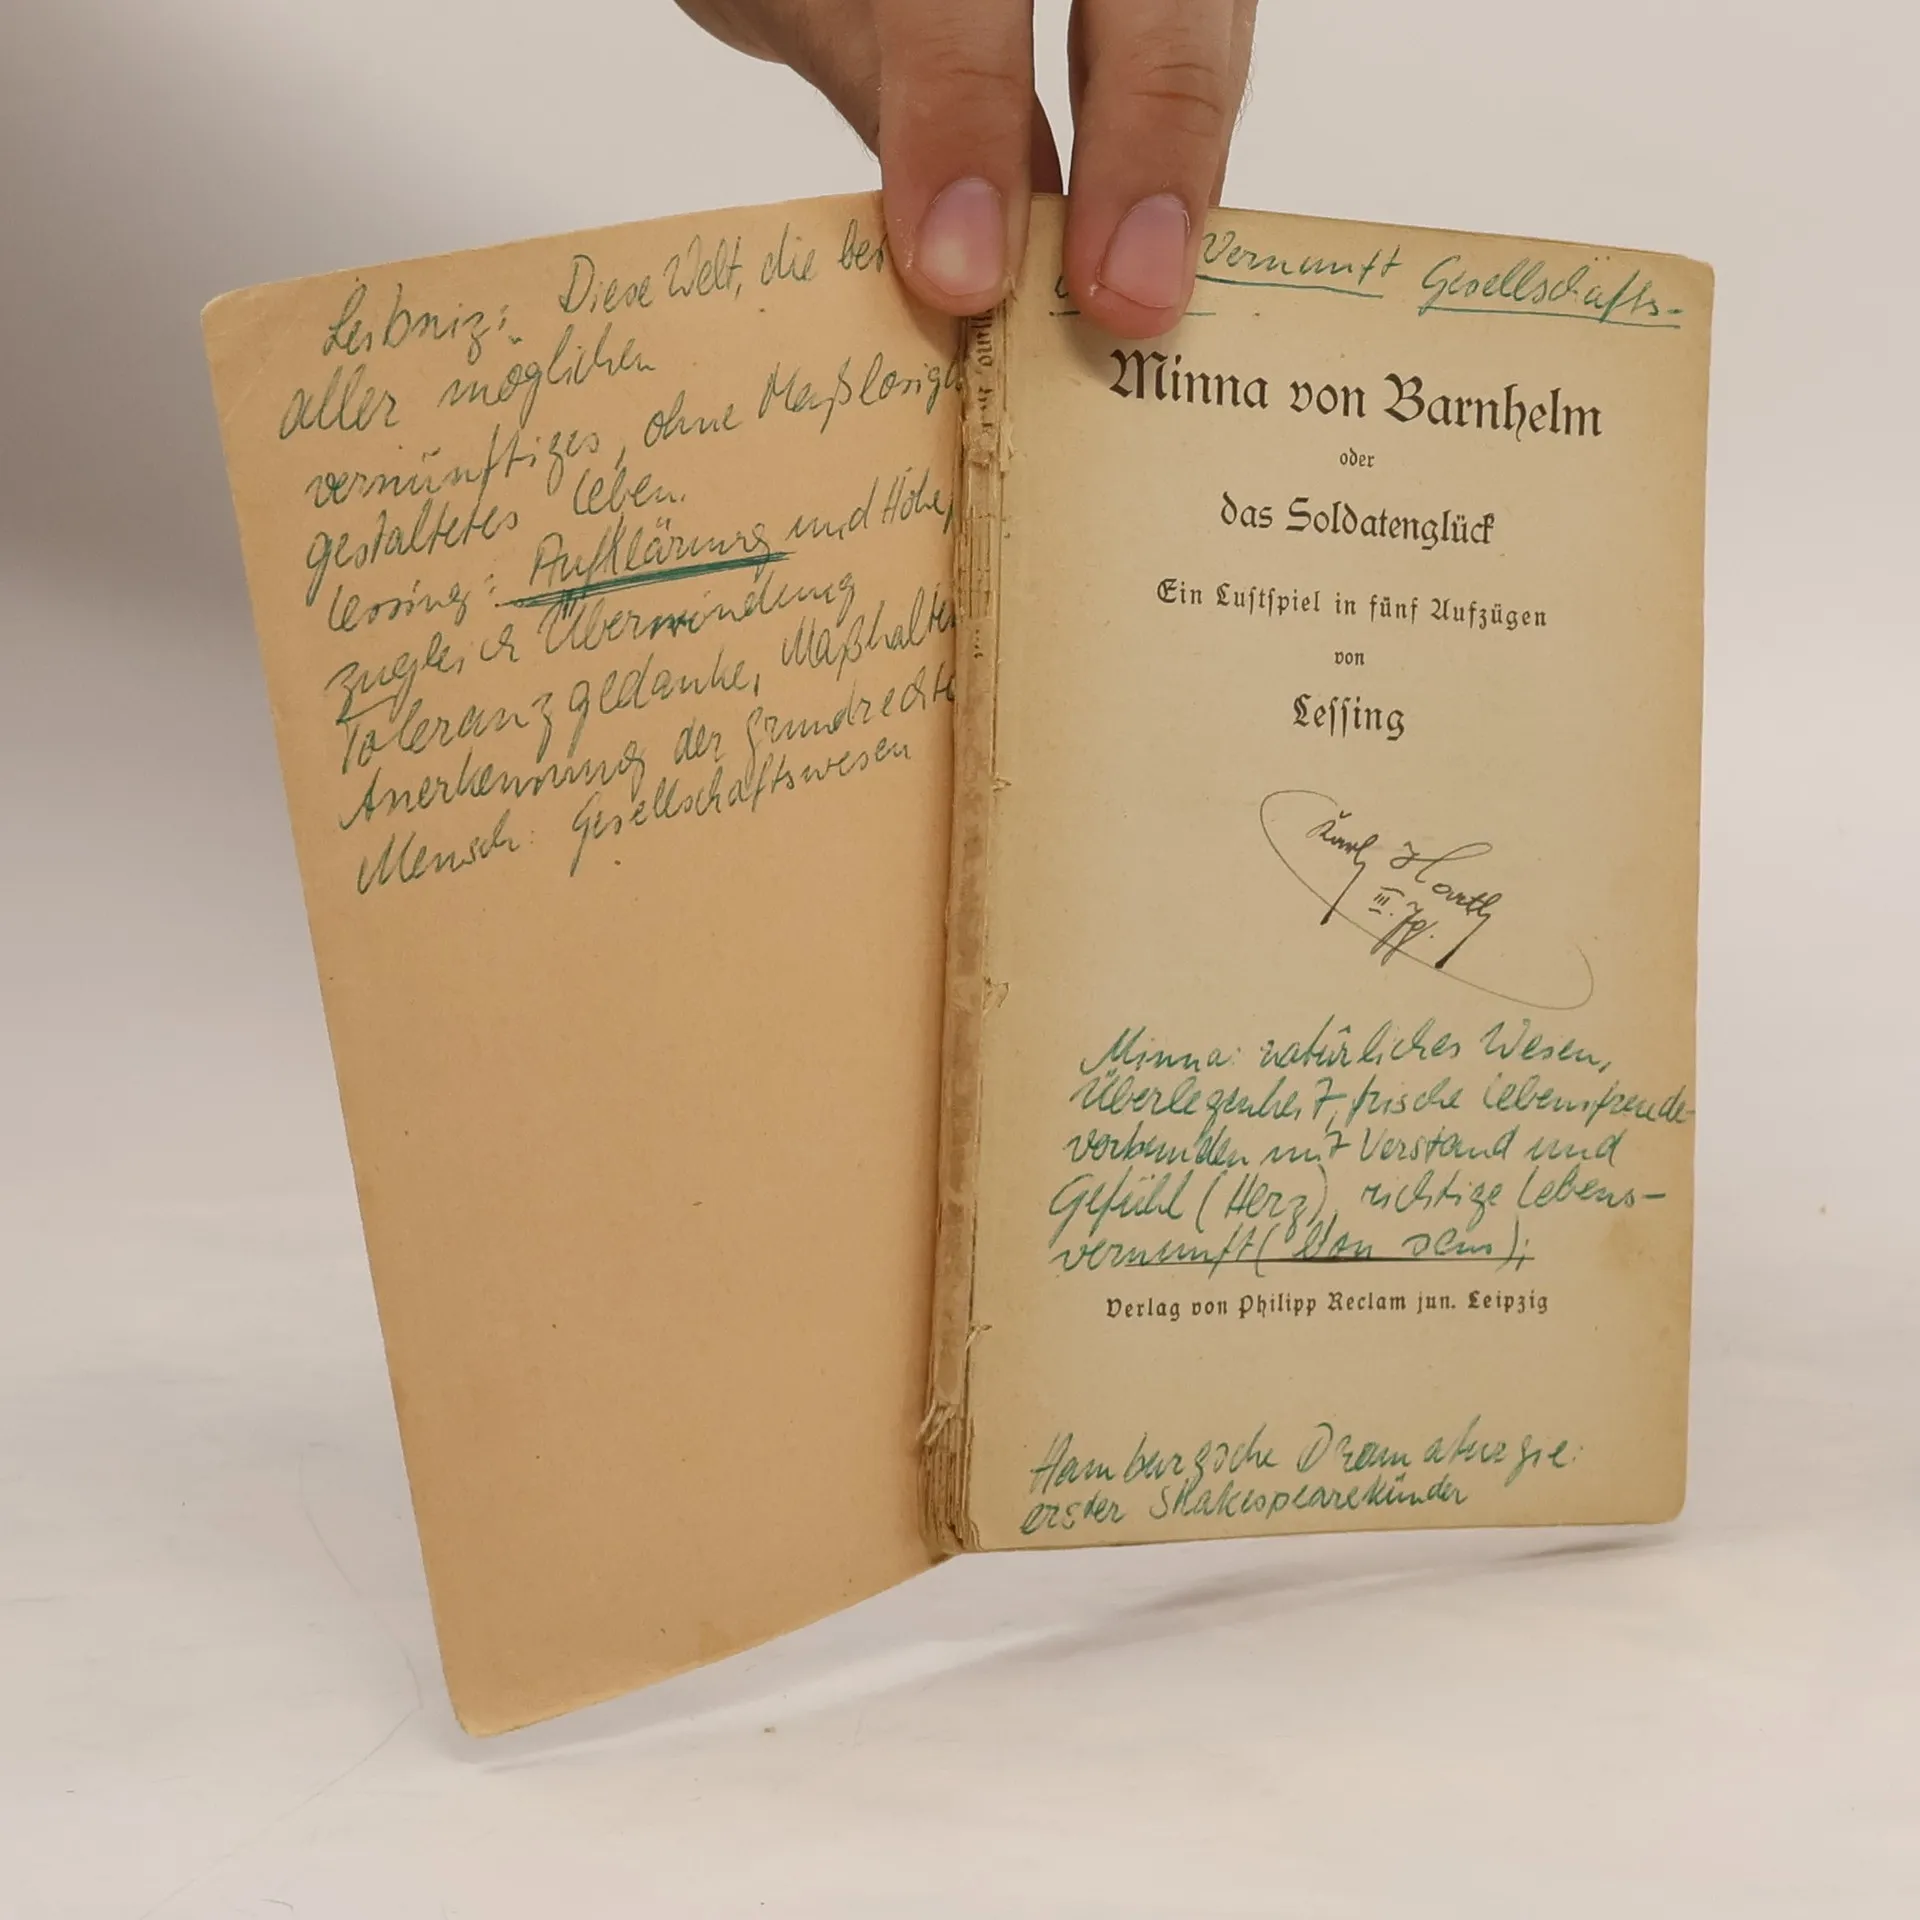 Leibniz: Diese Welt, die bes
aller möglichen
vernünftiges, ohne Maßlosigk
gestaltetes Leben.
Lessing: Aufklärung und Höhe
zugleich Überwindung
Toleranzgedanke, Maßhalten
Anerkennung der Grundrechte
Mensch: Gesellschaftswesen
Vernunft Gesellschafts-
Minna von Barnhelm
oder
das Soldatenglück
Ein Lustspiel in fünf Aufzügen
von
Lessing
Karl
III. Jg.
Minna: natürliches Wesen,
Überlegenheit, frische Lebensfreude
verbunden mit Verstand und
Gefühl (Herz), richtige Lebens-
vernunft (bon sens);
Verlag von Philipp Reclam jun. Leipzig
Hamburgische Dramaturgie:
erster Shakespearekünder